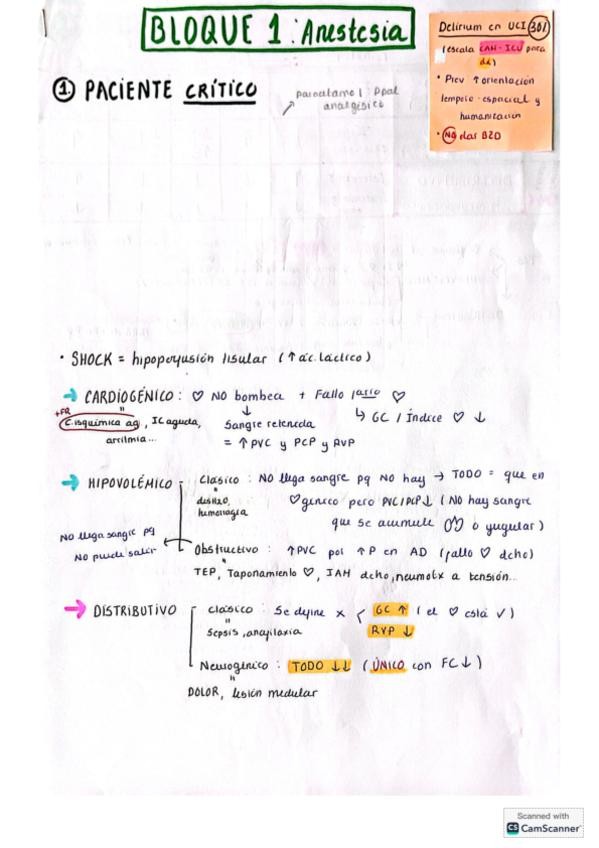 BLOQUE 1: Anestesia
Delirium en UCI (30%)
(escala CAM-ICU para
dx)
• Prev ↑ orientación
temporo-espacial y
humanización
• NO das BZD
① PACIENTE CRÍTICO
paracetamol: ppal
analgésico
• SHOCK = hipoperfusión tisular (↑ ác. láctico)
→ CARDIOGÉNICO: ♡ NO bombea + Fallo 1ario ♡
+FR
"
C. isquémica ag, IC aguda,
arritmia...
↓
Sangre retenida
= ↑ PVC y PCP y RVP
↳ GC / Índice ♡ ↓
→ HIPOVOLÉMICO
Clásico: NO llega sangre pq NO hay → TODO = que en
"
deshid,
hemorragia
♡génico pero PVC/PCP↓ (NO hay sangre
que se acumule o yugular)
NO llega sangre pq
NO puede salir
Obstructivo: ↑PVC por ↑P en AD (fallo ♡ dcho)
TEP, Taponamiento ♡, IAM dcho, neumotx a tensión...
→ DISTRIBUTIVO
Clásico: Se define x
GC ↑ (el ♡ está ✓)
RVP ↓
"
Sepsis, anafilaxia
Neurogénico: TODO ↓↓ (ÚNICO con FC↓)
"
DOLOR, lesión medular
Scanned with
CS CamScanner